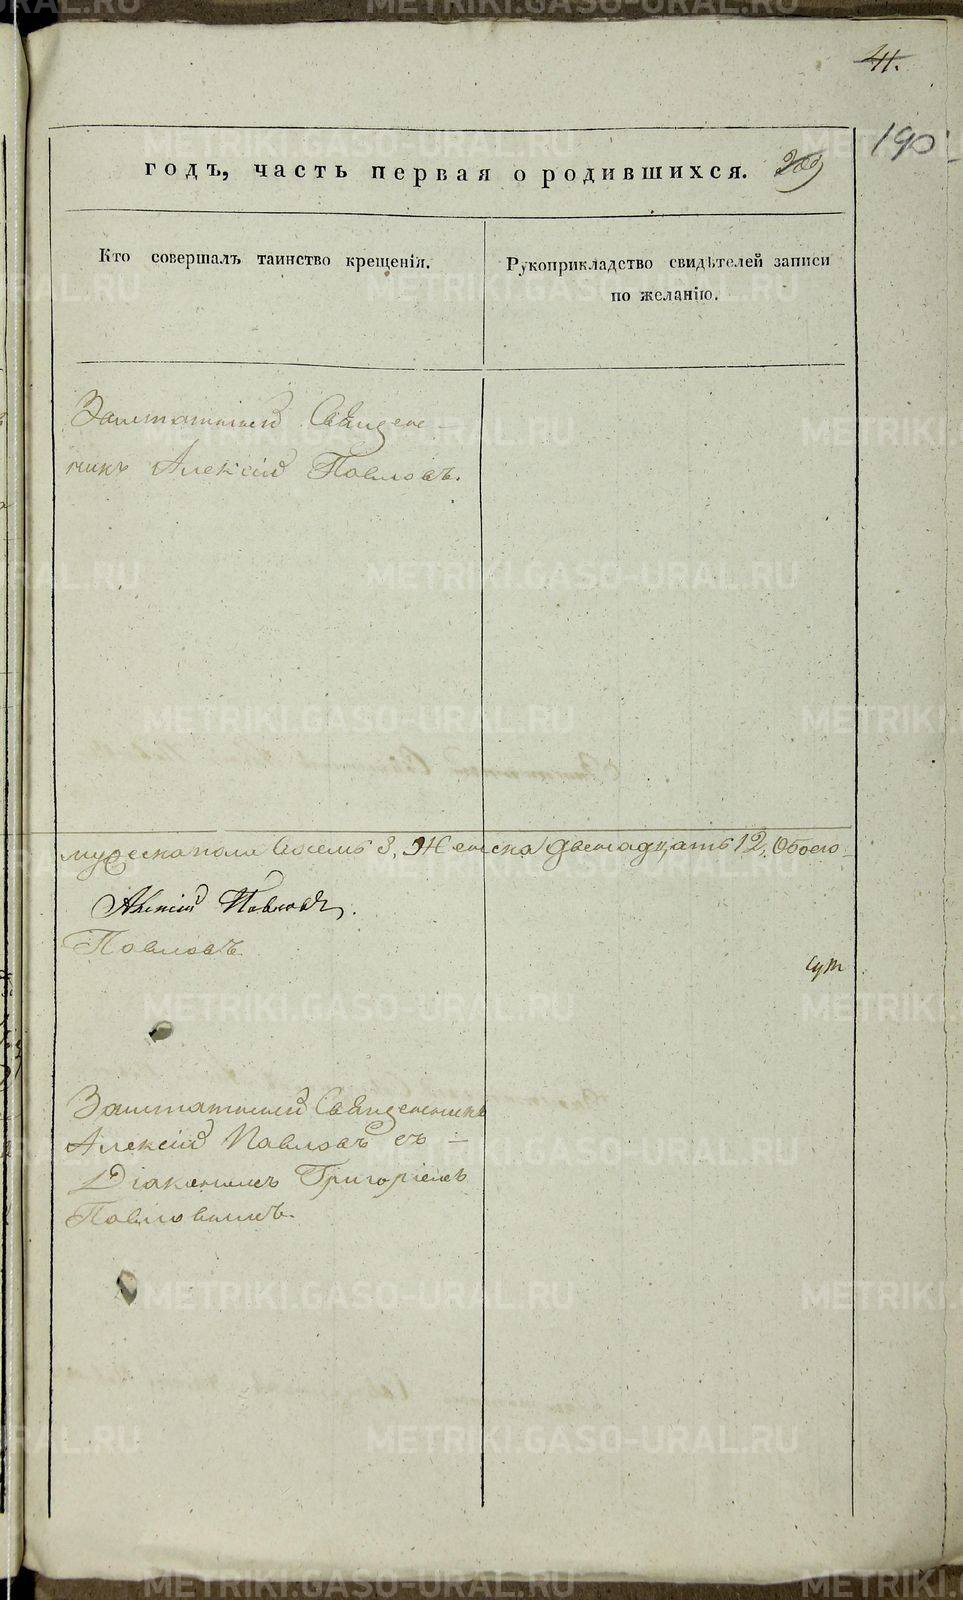 41.
190
годъ, часть первая о родившихся.
Кто совершалъ таинство крещенія.
Рукоприкладство свидѣтелей записи
по желанію.
Заштатный Священ-
никъ Алексій Павловъ.
мужеска пола восемь 8, Женска двенадцать 12, Обоего
Алексій Павловъ.
Павловъ
Заштатный Священникъ
Алексій Павловъ съ
Діакономъ Григоріемъ
Павловымъ.
METRIKI.GASO-URAL.RU